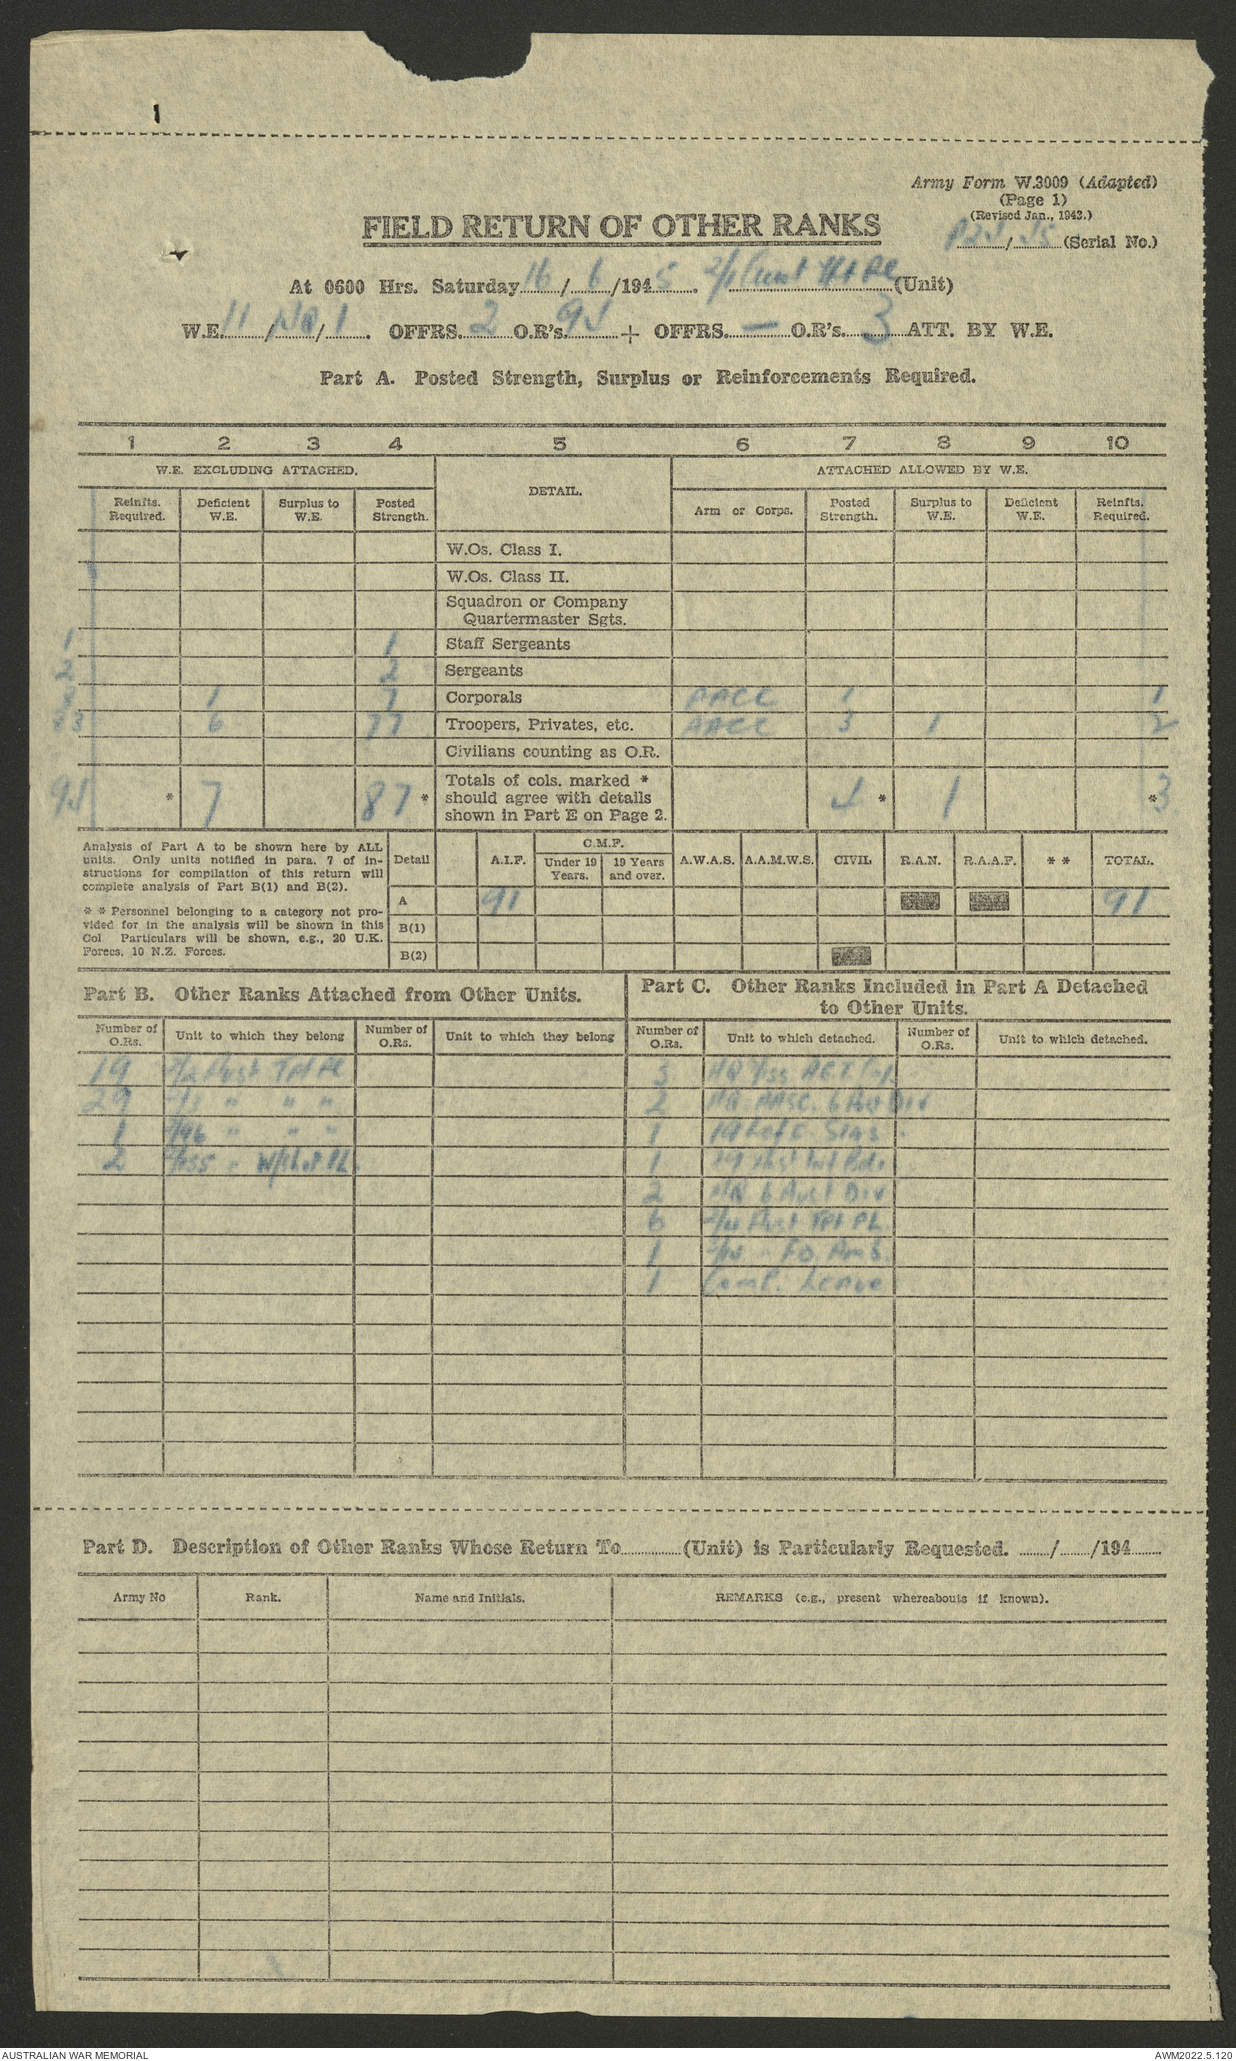 Army Form W.3009 (Adapted)
(Page 1)
(Revised Jan., 1943.)
FIELD RETURN OF OTHER RANKS
/ (Serial No.)
At 0600 Hrs. Saturday 16/6/1945. 2/1 Aust Tpt Pl (Unit)
W.E. 11/ /1. OFFRS. 2 O.R's. 94 + OFFRS. — O.R's. 3 ATT. BY W.E.
Part A. Posted Strength, Surplus or Reinforcements Required.
1 2 3 4 5 6 7 8 9 10
W.E. EXCLUDING ATTACHED. DETAIL. ATTACHED ALLOWED BY W.E.
Reinfts. Required. Deficient W.E. Surplus to W.E. Posted Strength. Arm or Corps. Posted Strength. Surplus to W.E. Deficient W.E. Reinfts. Required.
W.Os. Class I.
W.Os. Class II.
Squadron or Company
Quartermaster Sgts.
1 1 Staff Sergeants
2 2 Sergeants
8 1 7 Corporals AACC 1 1
83 6 77 Troopers, Privates, etc. AACC 3 1 2
Civilians counting as O.R.
94 * 7 87 * Totals of cols. marked * should agree with details shown in Part E on Page 2. 4 * 1 * 3
Analysis of Part A to be shown here by ALL
units. Only units notified in para. 7 of in-
structions for compilation of this return will
complete analysis of Part B(1) and B(2).
* * Personnel belonging to a category not pro-
vided for in the analysis will be shown in this
Col Particulars will be shown, e.g., 20 U.K.
Forces, 10 N.Z. Forces.
Detail A.I.F. C.M.F. Under 19 Years. 19 Years and over. A.W.A.S. A.A.M.W.S. CIVIL R.A.N. R.A.A.F. * * TOTAL.
A 91 91
B(1)
B(2)
Part B. Other Ranks Attached from Other Units.
Number of O.Rs. Unit to which they belong Number of O.Rs. Unit to which they belong
19 2/2 Aust Tpt Pl
29 2/3 " " "
1 2/46 " " "
2 2/155 " W/shop Pl.
Part C. Other Ranks Included in Part A Detached
to Other Units.
Number of O.Rs. Unit to which detached. Number of O.Rs. Unit to which detached.
3 HQ
2 HQ AASC 6 Aust Div
1 19 L of C Sigs
1 19 Aust Inf Bde
2 HQ 6 Aust Div
6 2/4 Aust Tpt Pl.
1 Fd. Amb.
1 Comp. Leave
Part D. Description of Other Ranks Whose Return To (Unit) is Particularly Requested. / /194
Army No Rank. Name and Initials. REMARKS (e.g., present whereabouts if known).
AUSTRALIAN WAR MEMORIAL AWM2022.5.120